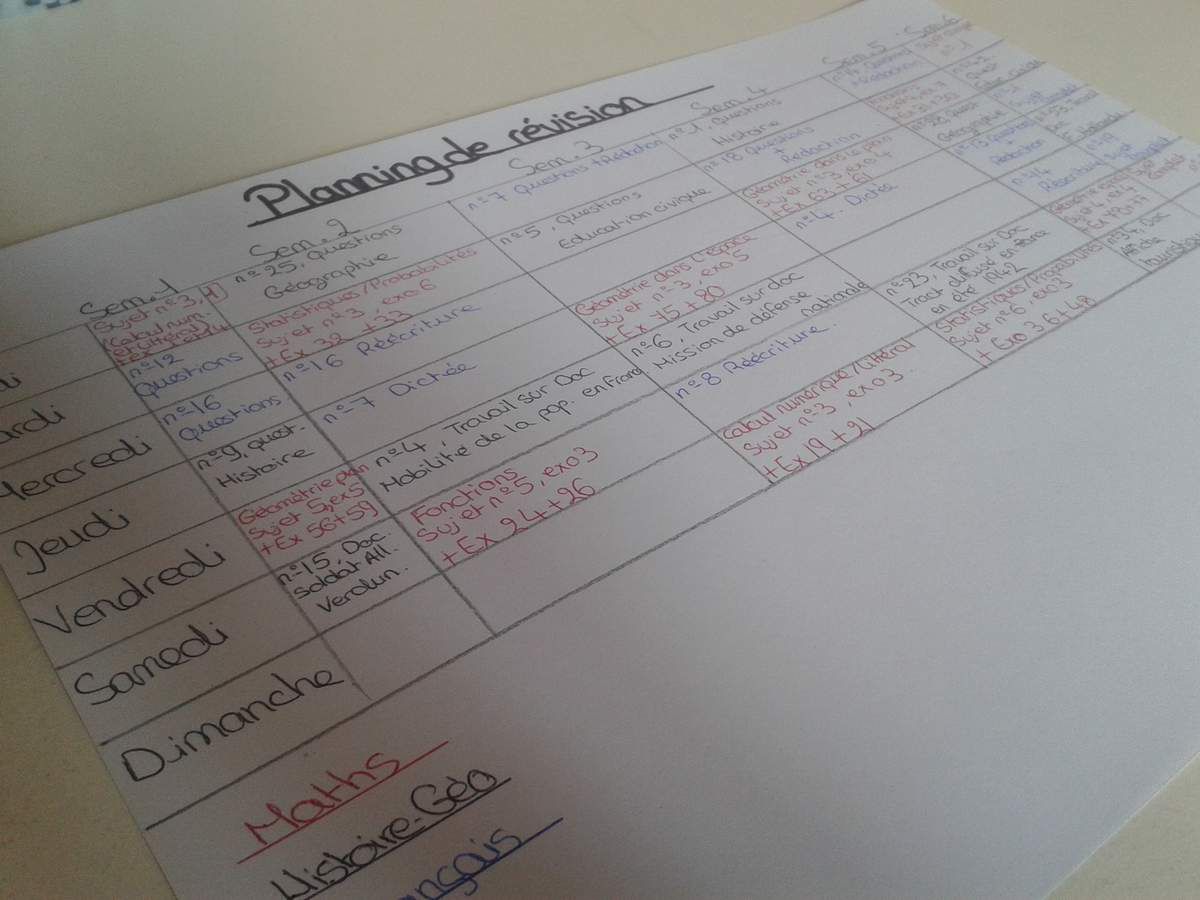 Planning de révision
Sem. 1
Sem. 2
Sem. 3
Sem. 4
Sem. 5
Sem. 6
di
Sujet n°3, 4
(Calcul num.
et littéral)
n°25, Questions
Géographie
n°7 Questions + Rédaction
n°1, Questions
Histoire
Rédaction
ardi
n°12
Questions
Statistiques/Probabilités
Sujet n°3, exo 6
+ Ex 32 + 33
n°5, Questions
Education civique
n°18 Questions
+
Rédaction
Mercredi
n°16
Questions
n°16 Réécriture
Géométrie dans le plan
Sujet n°3, exo 4
+ Ex 62 + 61
Géographie
Jeudi
n°9, quest.
Histoire
n°7 Dictée
Géométrie dans l'espace
Sujet n°3, exo 5
+ Ex 75 + 80
n°4. Dictée
n°13 Questions
+
Rédaction
Vendredi
Géométrie plan
Sujet 5, ex 5
+ Ex 56 + 59
n°4, Travail sur Doc
Mobilité de la pop. en France
n°6, Travail sur doc
Mission de défense
nationale
n°44
Réécriture
Samedi
n°15, Doc.
Soldat All.
Verdun.
Fonctions
Sujet n°5, exo 3
+ Ex 24 + 26
n°8 Réécriture.
n°23, Travail sur Doc
Tract diffusé en France
en été 1942
Dimanche
Calcul numérique/Littéral
Sujet n°3, exo 3.
+ Ex 19 + 21
Statistiques/Probabilités
Sujet n°6, exo 3
+ Exo 36 + 48
Affiche
Maths
Histoire-Géo
ançais